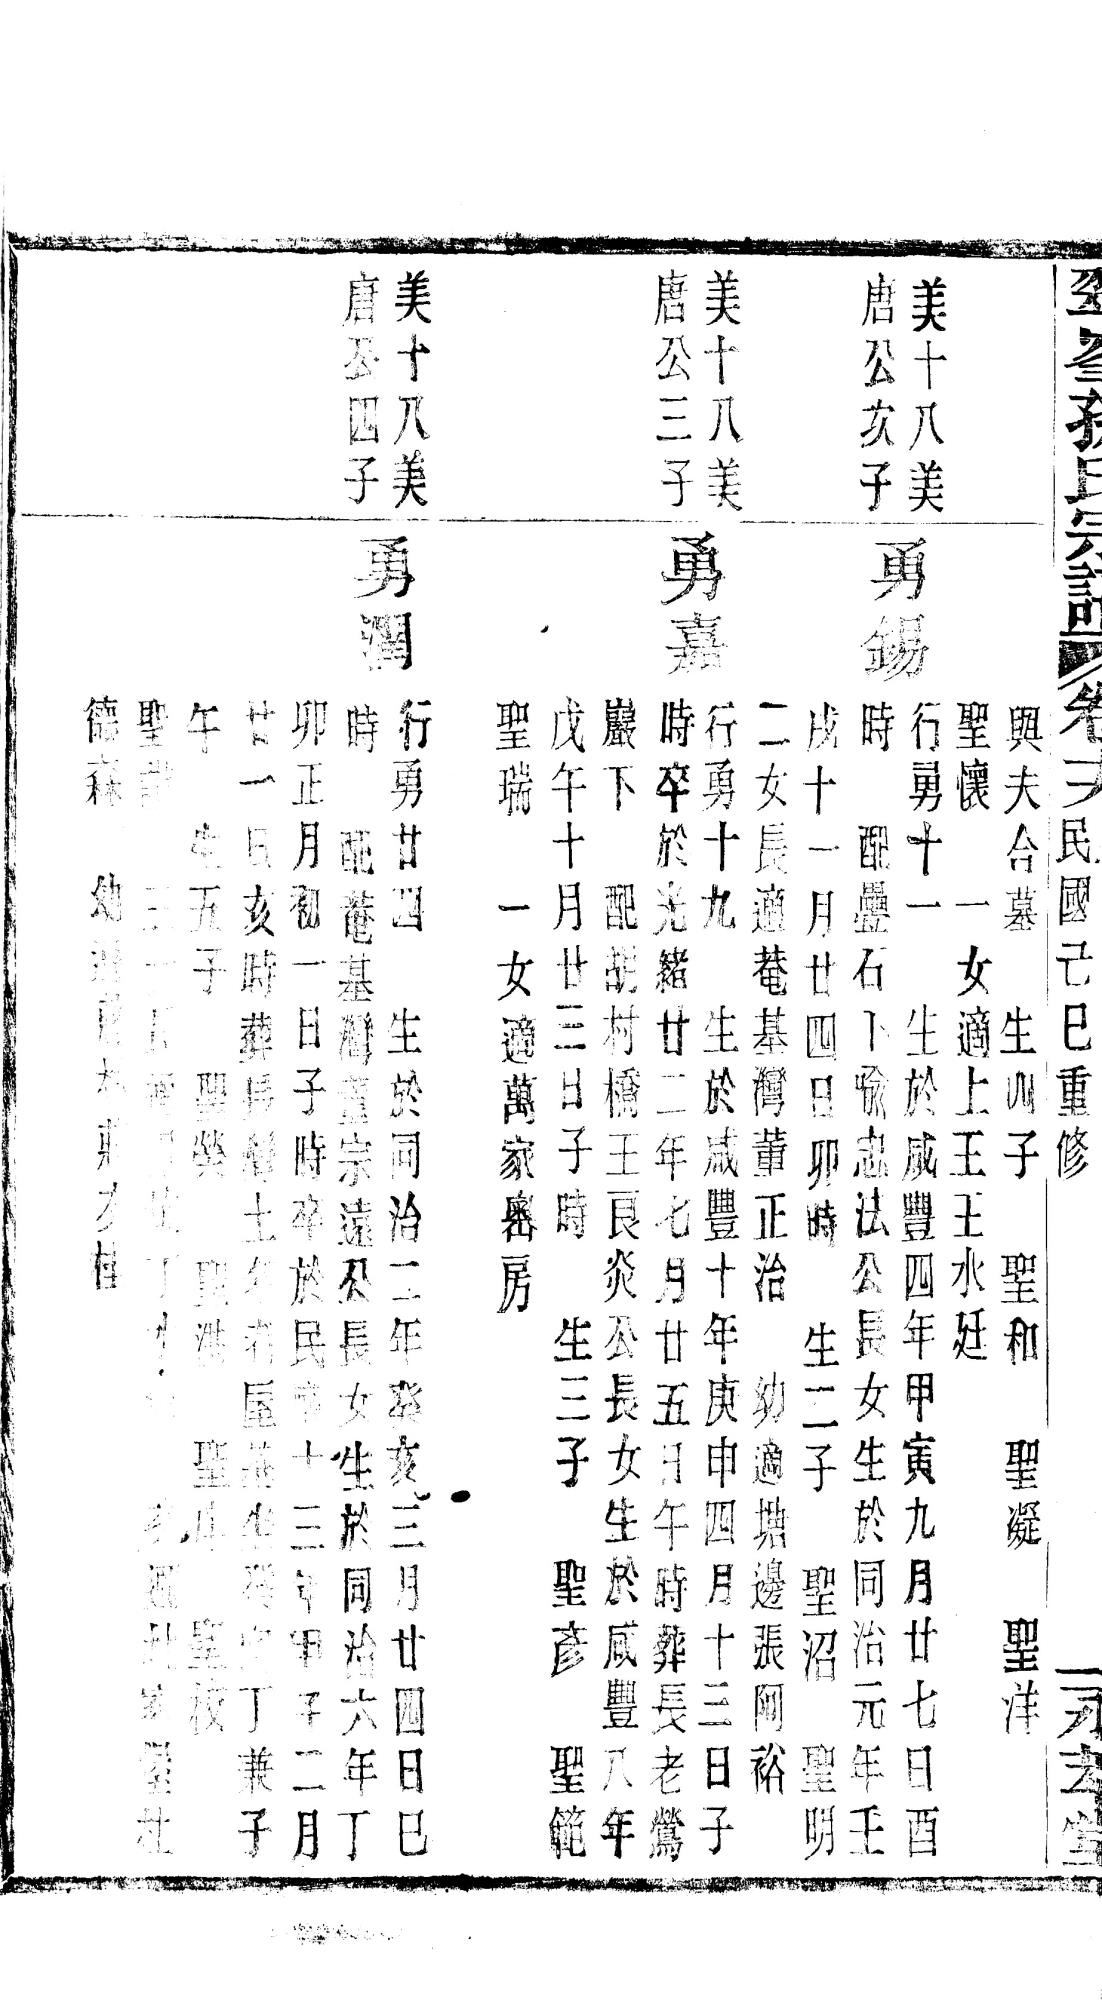 孫氏宗譜 卷 民國己巳重修
與夫合墓 生四子 聖和 聖凝 聖洋
聖懷 一女適上王王水廷
美十八美
唐公次子
勇錫
行勇十一 生於咸豐四年甲寅九月廿七日酉
時 配疊石卜喻志法公長女生於同治元年壬
戌十一月廿四日卯時 生二子 聖沼 聖明
二女長適菴基灣董正治 幼適塘邊張阿裕
美十八美
唐公三子
勇嘉
行勇十九 生於咸豐十年庚申四月十三日子
時卒於光緒廿二年七月廿五日午時葬長老鶯
巖下 配胡村橋王艮炎公長女生於咸豐八年
戊午十月廿三日子時 生三子 聖彥 聖範
聖瑞 一女適萬家嶴房
美十八美
唐公四子
勇潤
行勇廿四 生於同治二年癸亥三月廿四日巳
時 配菴基灣董宗遠公長女生於同治六年丁
卯正月初一日子時卒於民國十三年甲子二月
廿一日亥時葬長灣土名老屋基坐癸向丁兼子
午 生五子 聖榮 聖 聖 聖校
聖
德森 幼適